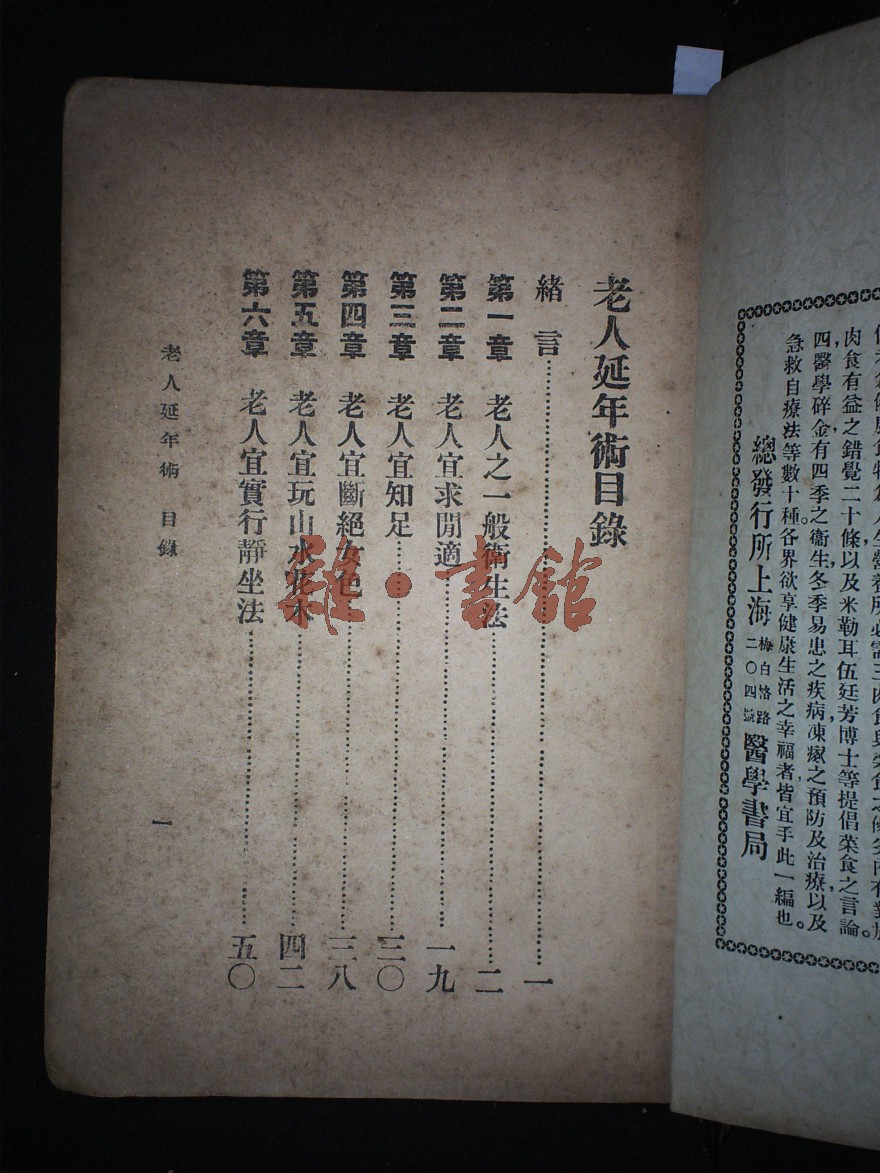 肉食有益之錯覺二十條以及米勒耳伍廷芳博士等提倡菜食之言論。
四醫學碎金有四季之衞生冬季易患之疾病凍瘃之預防及治療以及
急救自療法等數十種各界欲享健康生活之幸福者皆宜手此一編也。
總發行所上海梅白恪路二〇四號醫學書局
老人延年術目錄
緒言……一
第一章 老人之一般衞生法……二
第二章 老人宜求閒適……一九
第三章 老人宜知足……三〇
第四章 老人宜斷絕女色……三八
第五章 老人宜玩山水花木……四二
第六章 老人宜實行靜坐法……五〇
老人延年術 目錄
一
雜·書館